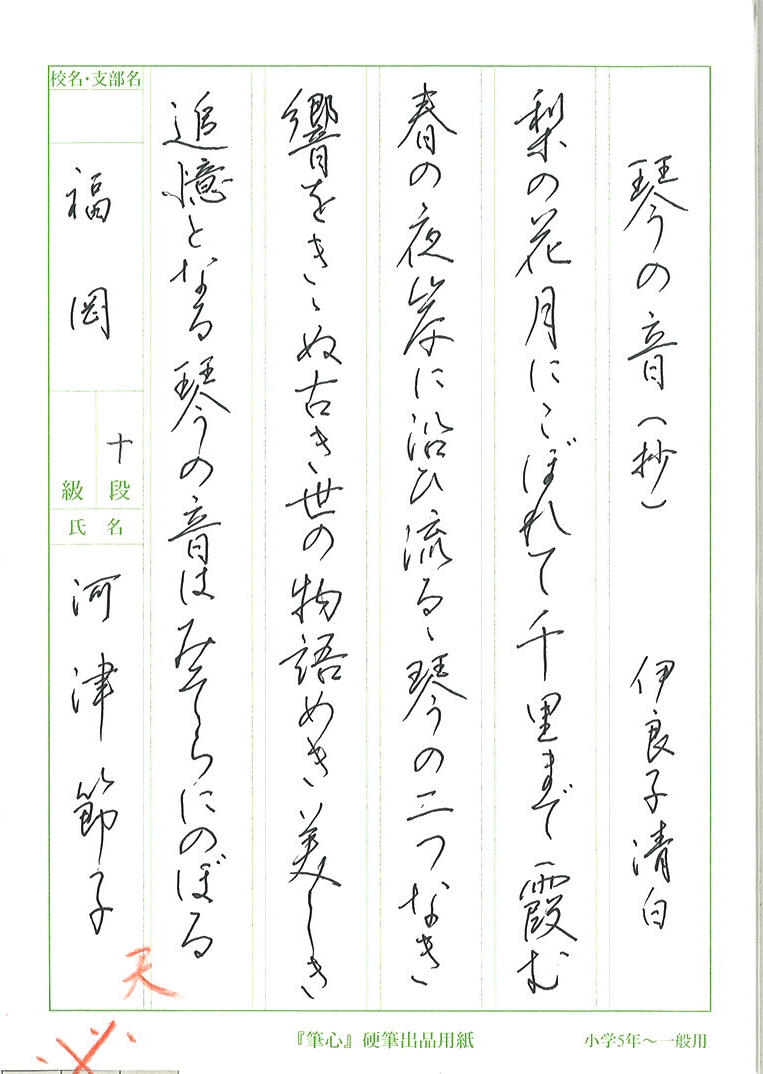 琴の音(抄) 伊良子清白
梨の花月にこぼれて千里まで霞む
春の夜岸に沿ひ流るゝ琴の二つなき
響をきゝぬ古き世の物語めき美しき
追憶となる琴の音はみそらにのぼる
校名・支部名
福岡
十段
級
氏名
河津節子
天
『筆心』硬筆出品用紙
小学5年〜一般用